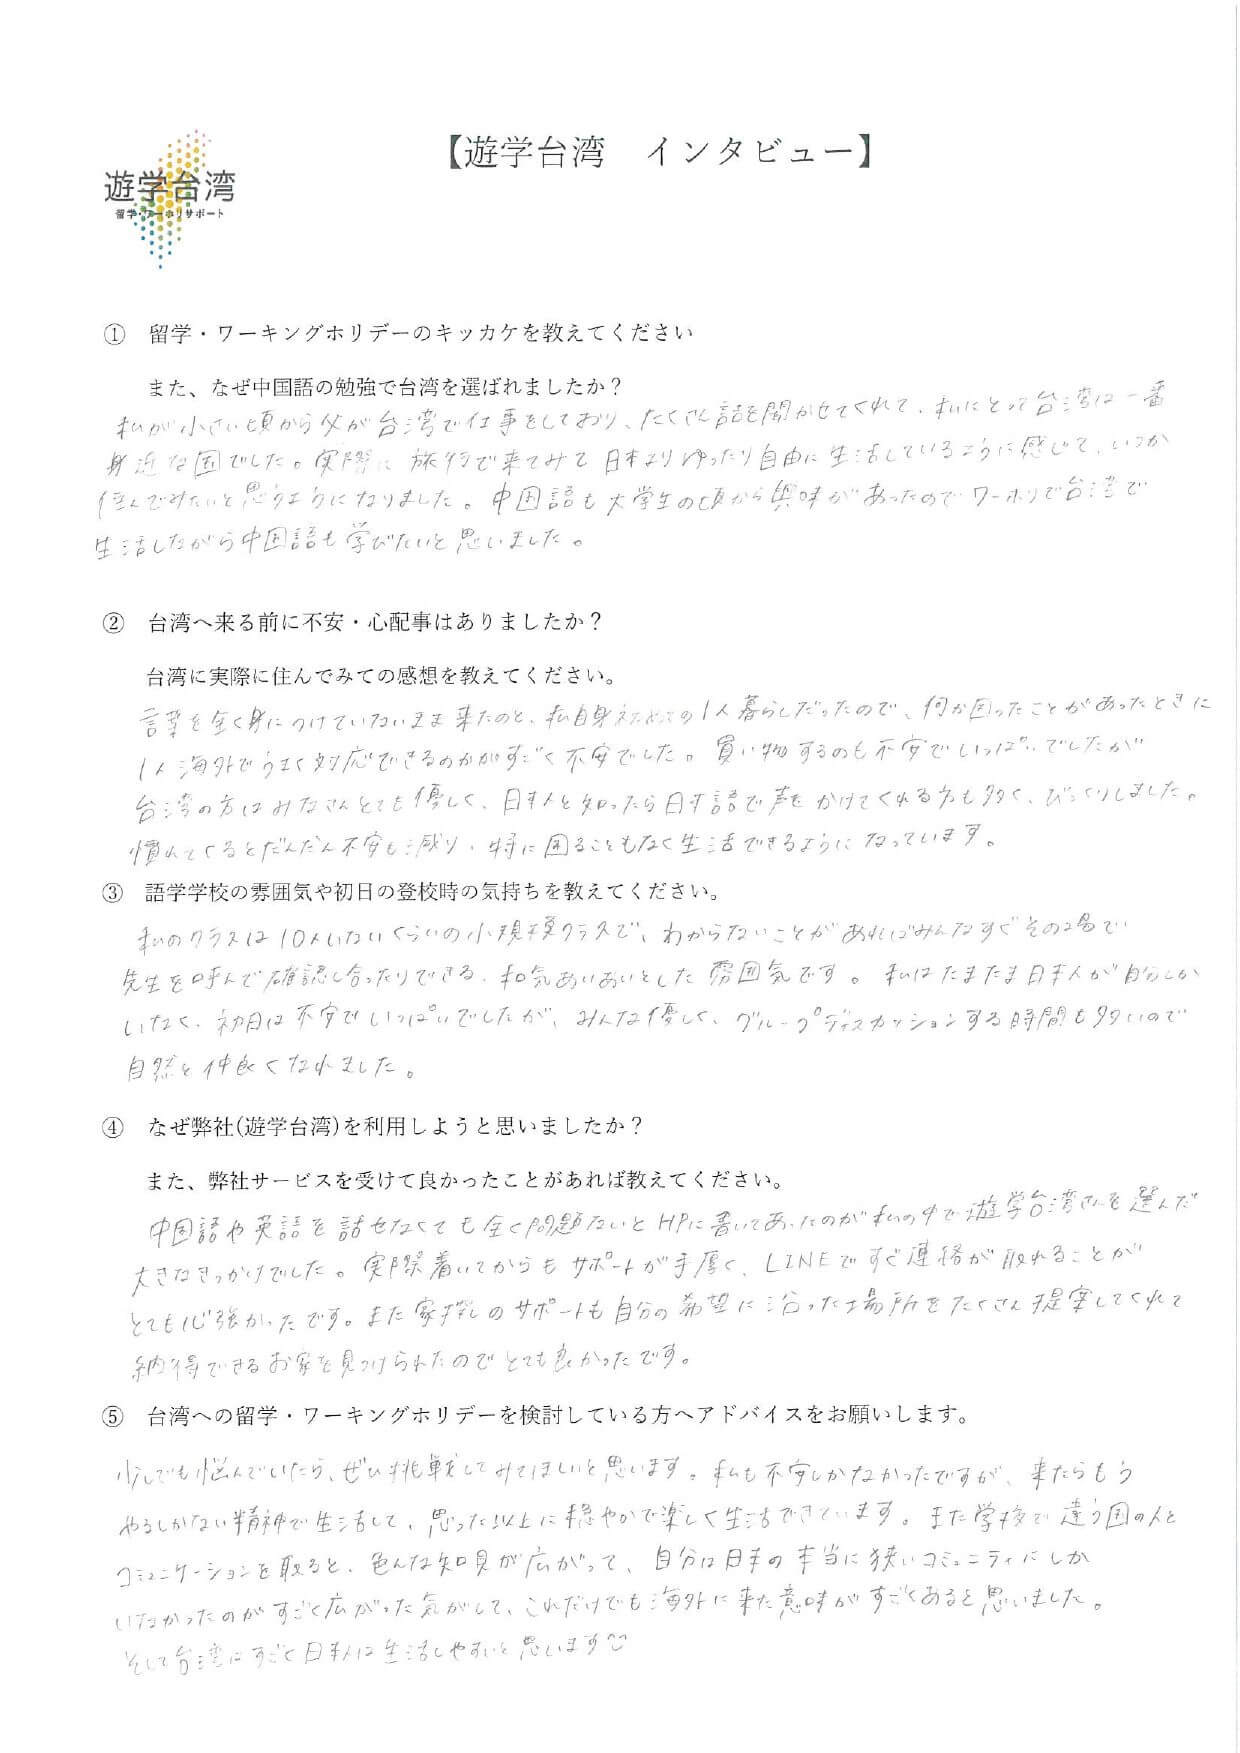 【遊学台湾 インタビュー】
遊学台湾
留学・ワーホリサポート
① 留学・ワーキングホリデーのキッカケを教えてください
また、なぜ中国語の勉強で台湾を選ばれましたか？
私が小さい頃から父が台湾で仕事をしており、たくさん話を聞かせてくれて、私にとって台湾は一番
身近な国でした。実際に旅行で来てみて日本よりゆったり自由に生活しているように感じて、いつか
住んでみたいと思うようになりました。中国語も大学生の頃から興味があったのでワーホリで台湾で
生活しながら中国語も学びたいと思いました。
② 台湾へ来る前に不安・心配事はありましたか？
台湾に実際に住んでみての感想を教えてください。
言葉を全く身につけていないまま来たのと、私自身初めての1人暮らしだったので、何か困ったことがあったときに
1人海外でうまく対応できるのかがすごく不安でした。買い物するのも不安でいっぱいでしたが
台湾の方はみなさんとても優しく、日本人と知ったら日本語で声をかけてくれる方も多く、びっくりしました。
慣れてくるとだんだん不安も減り、特に困ることもなく生活できるようになっています。
③ 語学学校の雰囲気や初日の登校時の気持ちを教えてください。
私のクラスは10人いないくらいの小規模クラスで、わからないことがあればみんなすぐその場で
先生を呼んで確認し合ったりできる、和気あいあいとした雰囲気です。私はたまたま日本人が自分しか
いなく、初日は不安でいっぱいでしたが、みんな優しく、グループディスカッションする時間も多いので
自然と仲良くなれました。
④ なぜ弊社(遊学台湾)を利用しようと思いましたか？
また、弊社サービスを受けて良かったことがあれば教えてください。
中国語や英語を話せなくても全く問題ないとHPに書いてあったのが私の中で遊学台湾さんを選んだ
大きなきっかけでした。実際着いてからもサポートが手厚く、LINEですぐ連絡が取れることが
とても心強かったです。また家探しのサポートも自分の希望に沿った場所をたくさん提案してくれて
納得できるお家を見つけられたのでとても良かったです。
⑤ 台湾への留学・ワーキングホリデーを検討している方へアドバイスをお願いします。
少しでも悩んでいたら、ぜひ挑戦してみてほしいと思います。私も不安しかなかったですが、来たらもう
やるしかない精神で生活して、思った以上に穏やかで楽しく生活できています。また学校で違う国の人と
コミュニケーションを取ると、色んな知見が広がって、自分は日本の本当に狭いコミュニティにしか
いなかったのがすごく広がった気がして、これだけでも海外に来た意味がすごくあると思いました。
そして台湾はすごく日本人は生活しやすいと思います